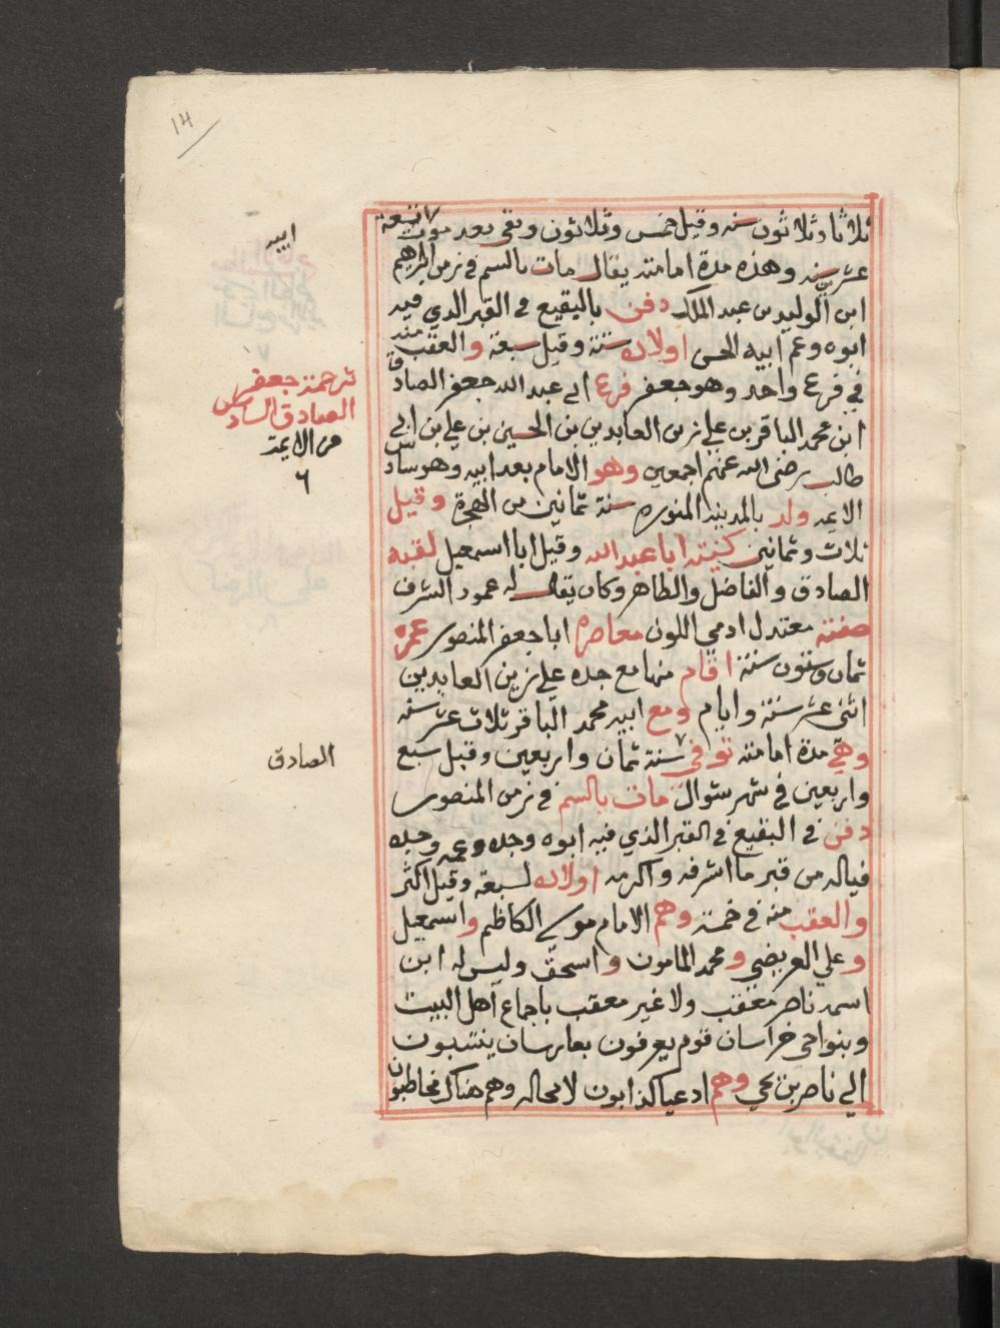 14
ثلاثا وثلاثون سنه وقيل خمس وثلاثون وبقى بعد موت تسعة
ابيه
عشر سنه وهذه مدة امامته يقال مات بالسم في زمن ابرهيم
ابن الوليد بن عبد الملك دفن بالبقيع في القبر الذي فيه
ابوه وعم ابيه الحسن اولاده ستة وقيل سبعة والعقب منه
في فرع واحد وهو جعفر فرع ابي عبد الله جعفر الصادق
ابن محمد الباقر بن علي زين العابدين بن الحسين بن علي بن ابي
طالب رضى الله عنهم اجمعين وهو الامام بعد ابيه وهو سادس
الايمه ولد بالمدينه المنوره سنة ثمانين من الهجرة وقيل
ثلاث وثمانين كنيته ابا عبد الله وقيل ابا اسمعيل لقبه
الصادق والفاضل والطاهر وكان يقال له عمود الشرف
صفته معتدل ادمي اللون معاصره ابا جعفر المنصور عمره
ثمان وستون سنة اقام منها مع جده علي زين العابدين
اثنى عشر سنة وايام ومع ابيه محمد الباقر ثلاث عشر سنه
وهي مدة امامته توفي سنة ثمان واربعين وقيل سبع
واربعين في شهر شوال مات بالسم في زمن المنصور
دفن في البقيع في القبر الذي فيه ابوه وجده وعمه وجده
فياله من قبر ما اشرفه واكرمه اولاده لسبعة وقيل اكثر
والعقب منه في خمسة وهم الامام موسى الكاظم واسمعيل
وعلي العريضي ومحمد المامون واسحق وليس له ابن
اسمه ناصر معقب ولا غير معقب باجماع اهل البيت
وبنواحي خراسان قوم يعرفون بعارسان ينتسبون
الي ناصر بن يحي وهم ادعيا كذابون لا محاله وهم هناك يخاطبون
ترجمة جعفر
الصادق السادس
من الايمة
٦
الصادق